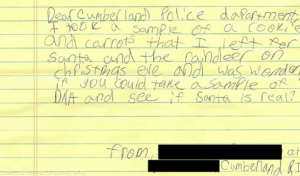 Dear Cumberland Police dapartment
I took a sample of a cookie
and carrots that I left for
Santa and the raindeer on
christmas eve and was wonder
if you could take a sample of
DNA and see if Santa is real?
from,
at
Cumberland RI